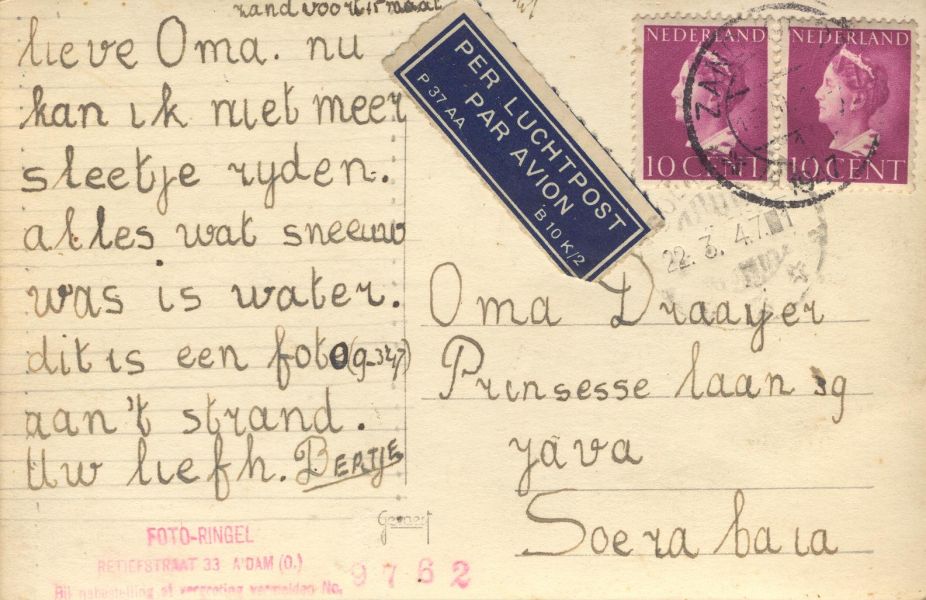 zandvoort maart
lieve Oma. nu
kan ik niet meer
sleetje ryden.
alles wat sneeuw
was is water.
dit is een foto (9-3-47)
aan 't strand.
Uw liefh. Bertje
PER LUCHTPOST
PAR AVION
P 37 AA
B 10 K/2
NEDERLAND
10 CENT
NEDERLAND
10 CENT
22. 3. 47. 1
Oma Draayer
Prinsesse laan 39
yava
Soera baia
Gevaert
FOTO-RINGEL
RETIEFSTRAAT 33 A'DAM (O.)
Bij nabestelling of vergroting vermelden No.
9762